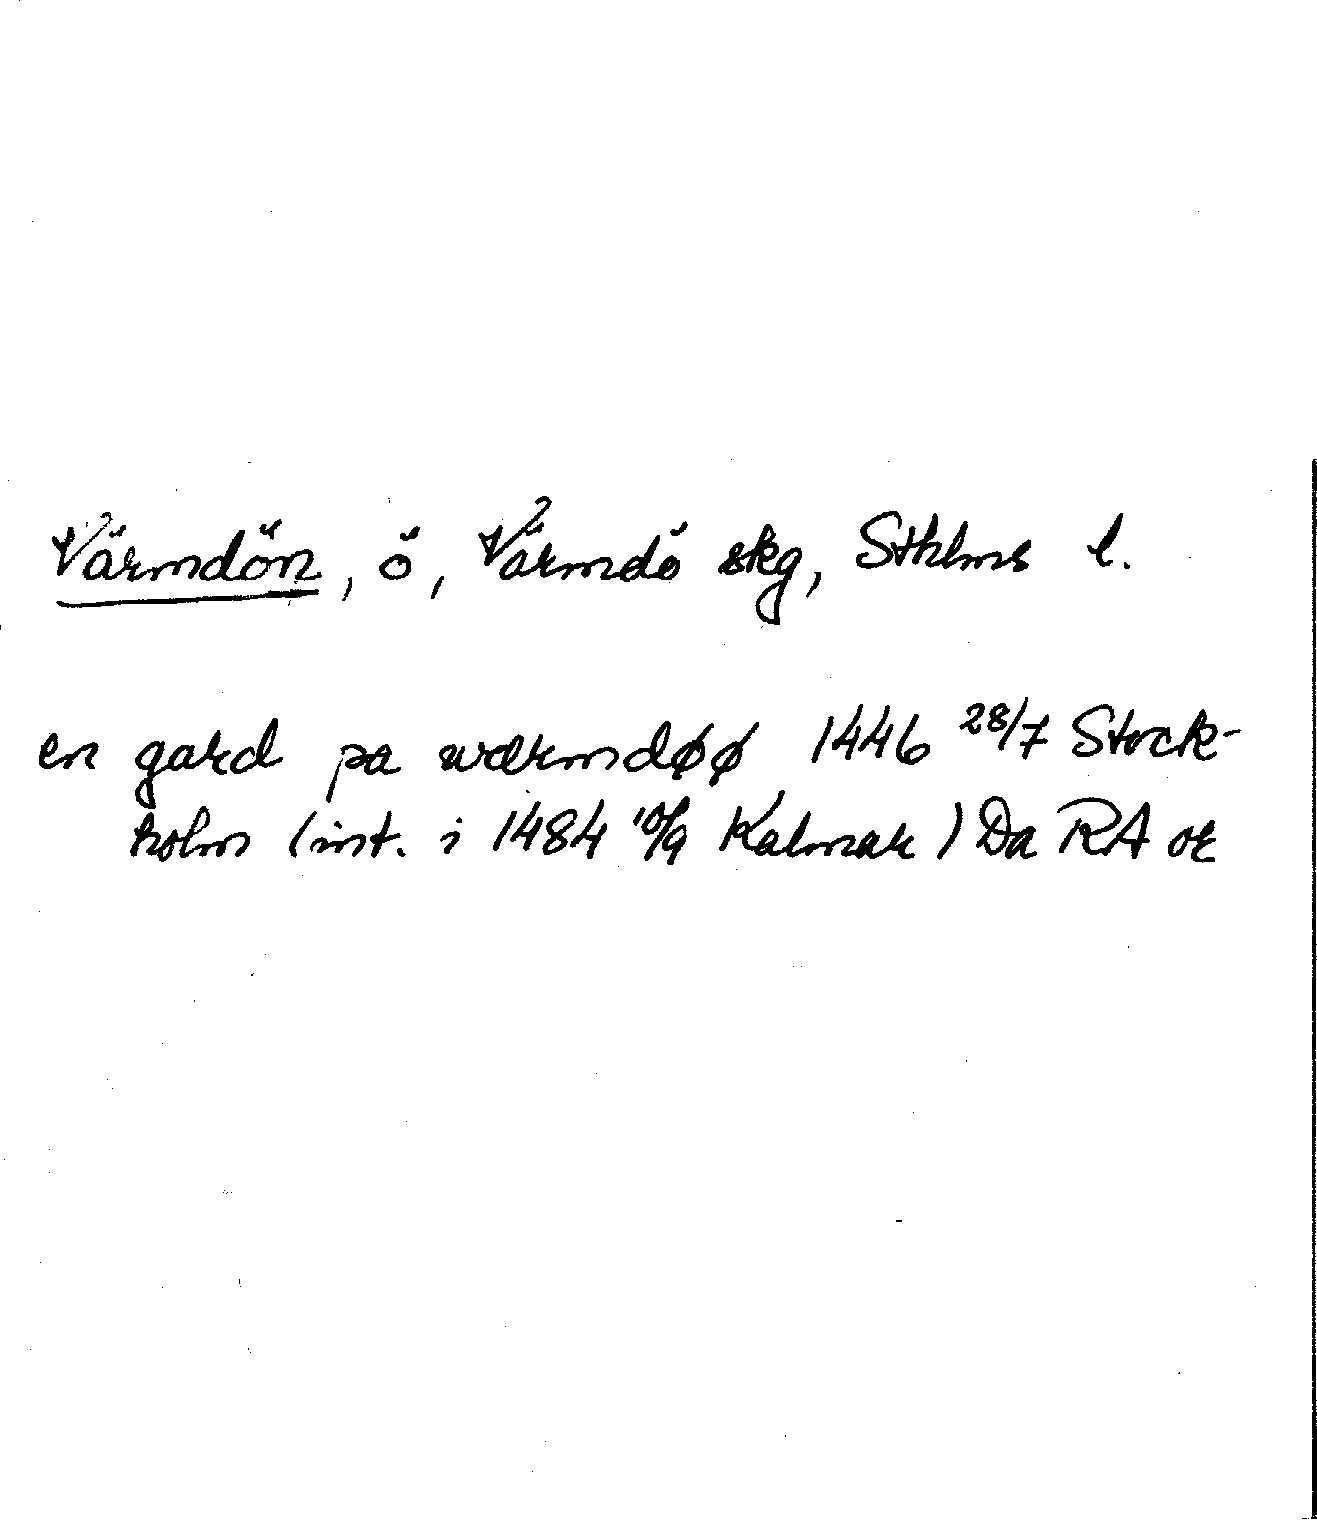 Värmdön, ö, Värmdö skg, Sthlms l.
en gard pa wærmdøø 1446 28/7 Stock-
holm (int. i 1484 10/9 Kalmar) Da RA or